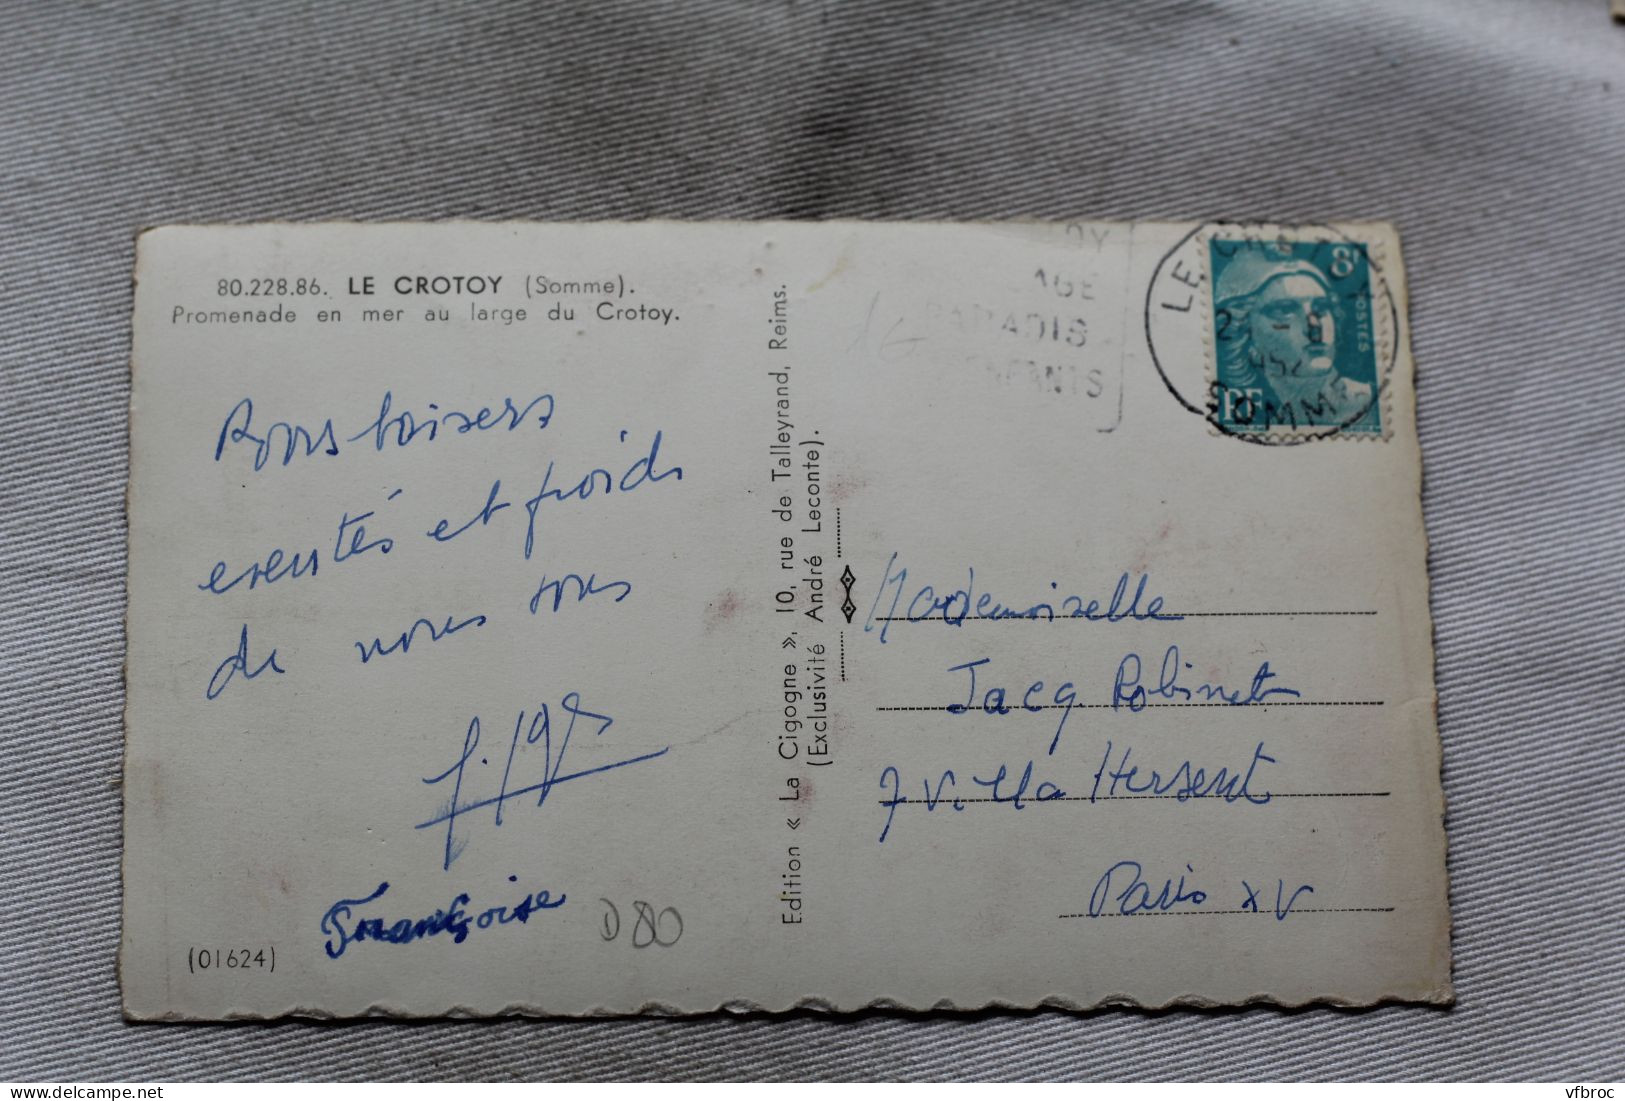 80.228.86. LE CROTOY (Somme).
Promenade en mer au large du Crotoy.
Bons baisers
éventés et froids
de nous tous
Françoise
D80
(01624)
Edition « La Cigogne », 10, rue de Talleyrand, Reims.
(Exclusivité André Leconte).
OY
AGE
PARADIS
ENFANTS
LE CROTOY
SOMME
8F
POSTES
RF
Mademoiselle
Jacq. Robinet
7 Villa Hersent
Paris XV
vfbroc